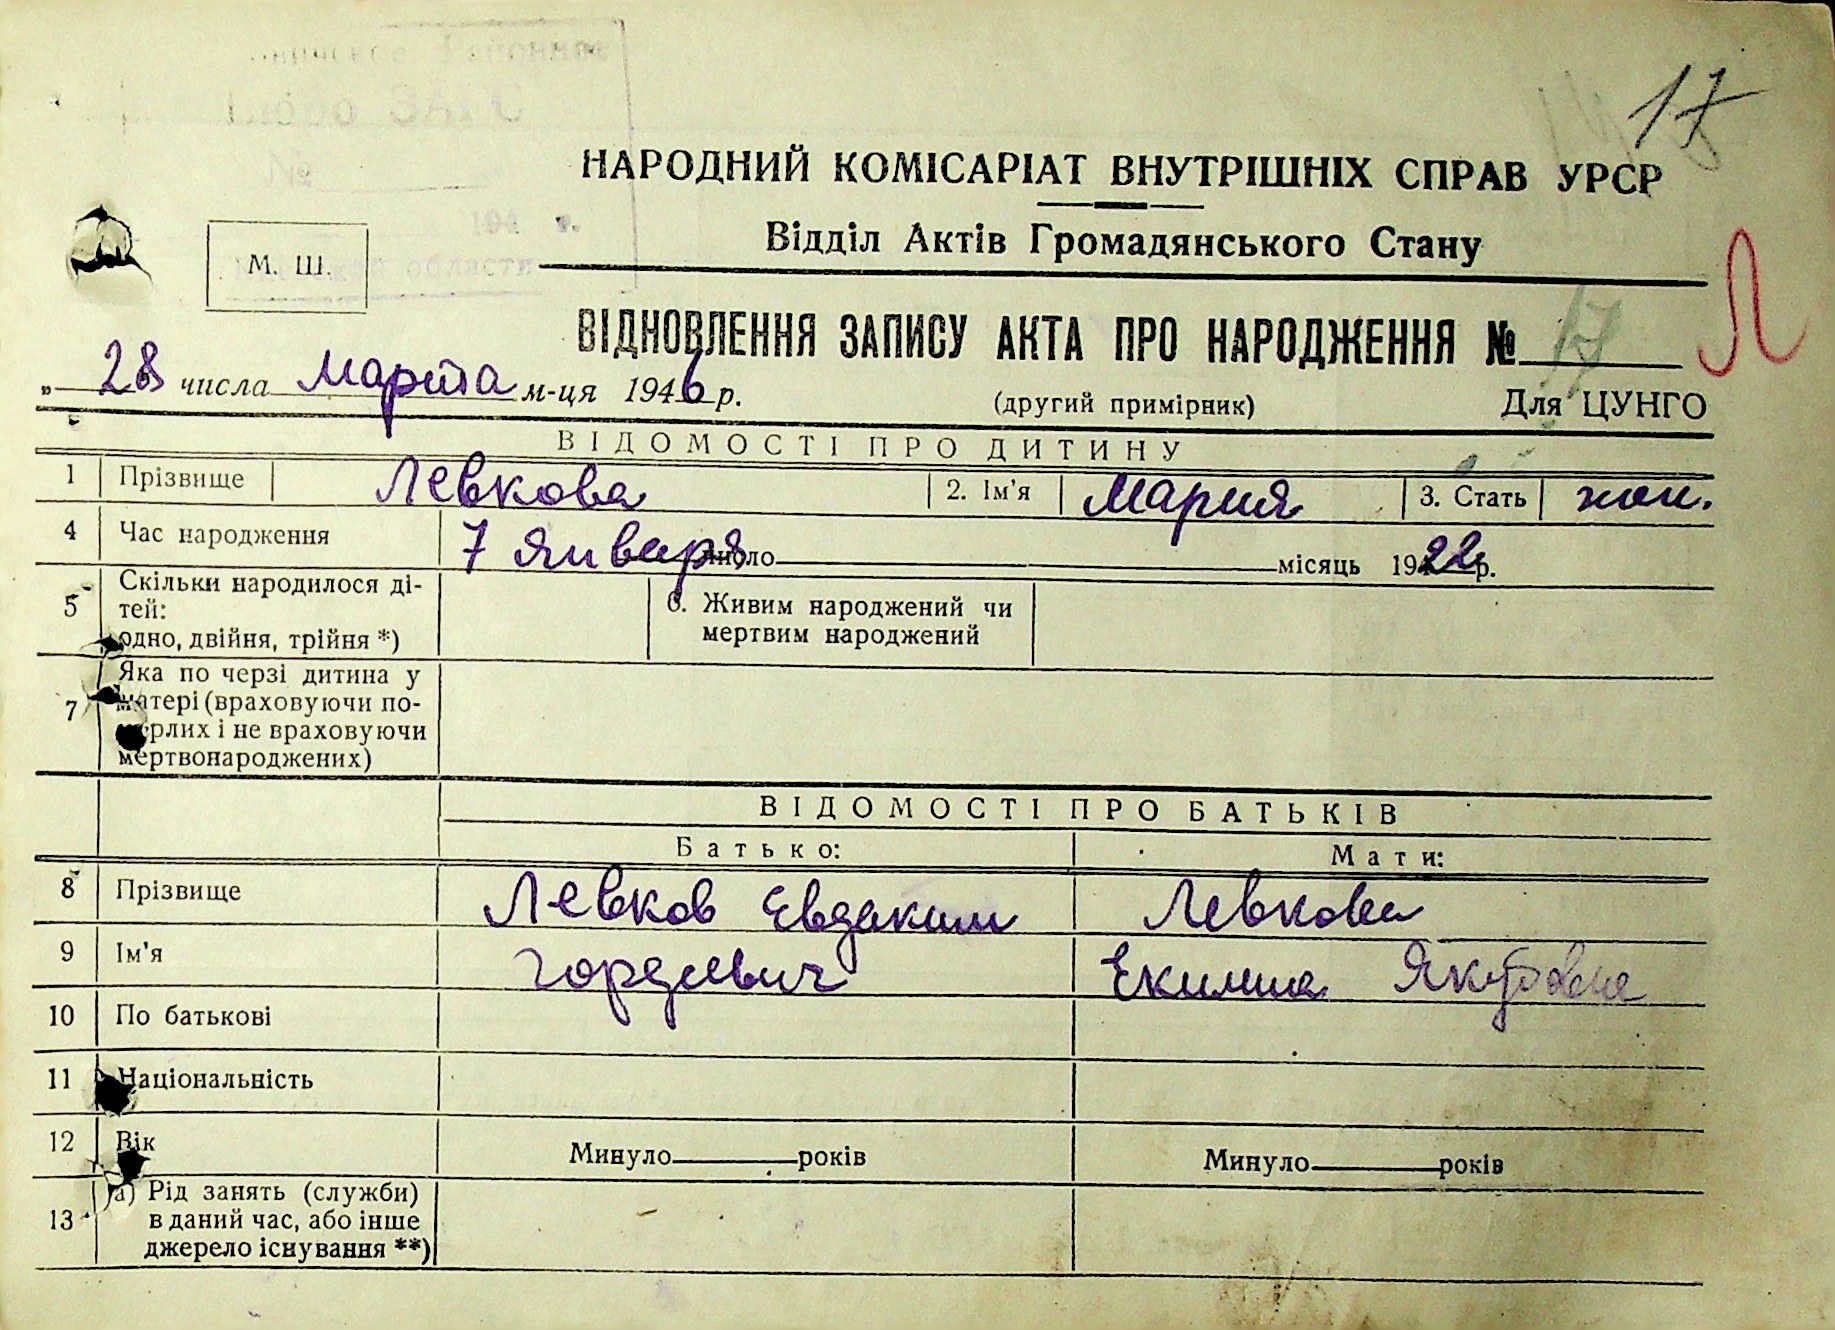 17
НАРОДНИЙ КОМІСАРІАТ ВНУТРІШНІХ СПРАВ УРСР
Відділ Актів Громадянського Стану
М. Ш.
Л
ВІДНОВЛЕННЯ ЗАПИСУ АКТА ПРО НАРОДЖЕННЯ № 17
„ 28 числа Марта м-ця 1946 р.
(другий примірник) Для ЦУНГО
ВІДОМОСТІ ПРО ДИТИНУ
1 Прізвище Левкова 2. Ім'я Мария 3. Стать жен.
4 Час народження 7 Января число місяць 1922 р.
5 Скільки народилося ді-
тей:
одно, двійня, трійня *)
6. Живим народжений чи
мертвим народжений
7 Яка по черзі дитина у
матері (враховуючи по-
мерлих і не враховуючи
мертвонароджених)
ВІДОМОСТІ ПРО БАТЬКІВ
Батько: Мати:
8 Прізвище Левков Евдаким Левкова
9 Ім'я Гордеевич Екилина
10 По батькові
11 Національність
12 Вік Минуло років Минуло років
13 а) Рід занять (служби)
в даний час, або інше
джерело існування **)